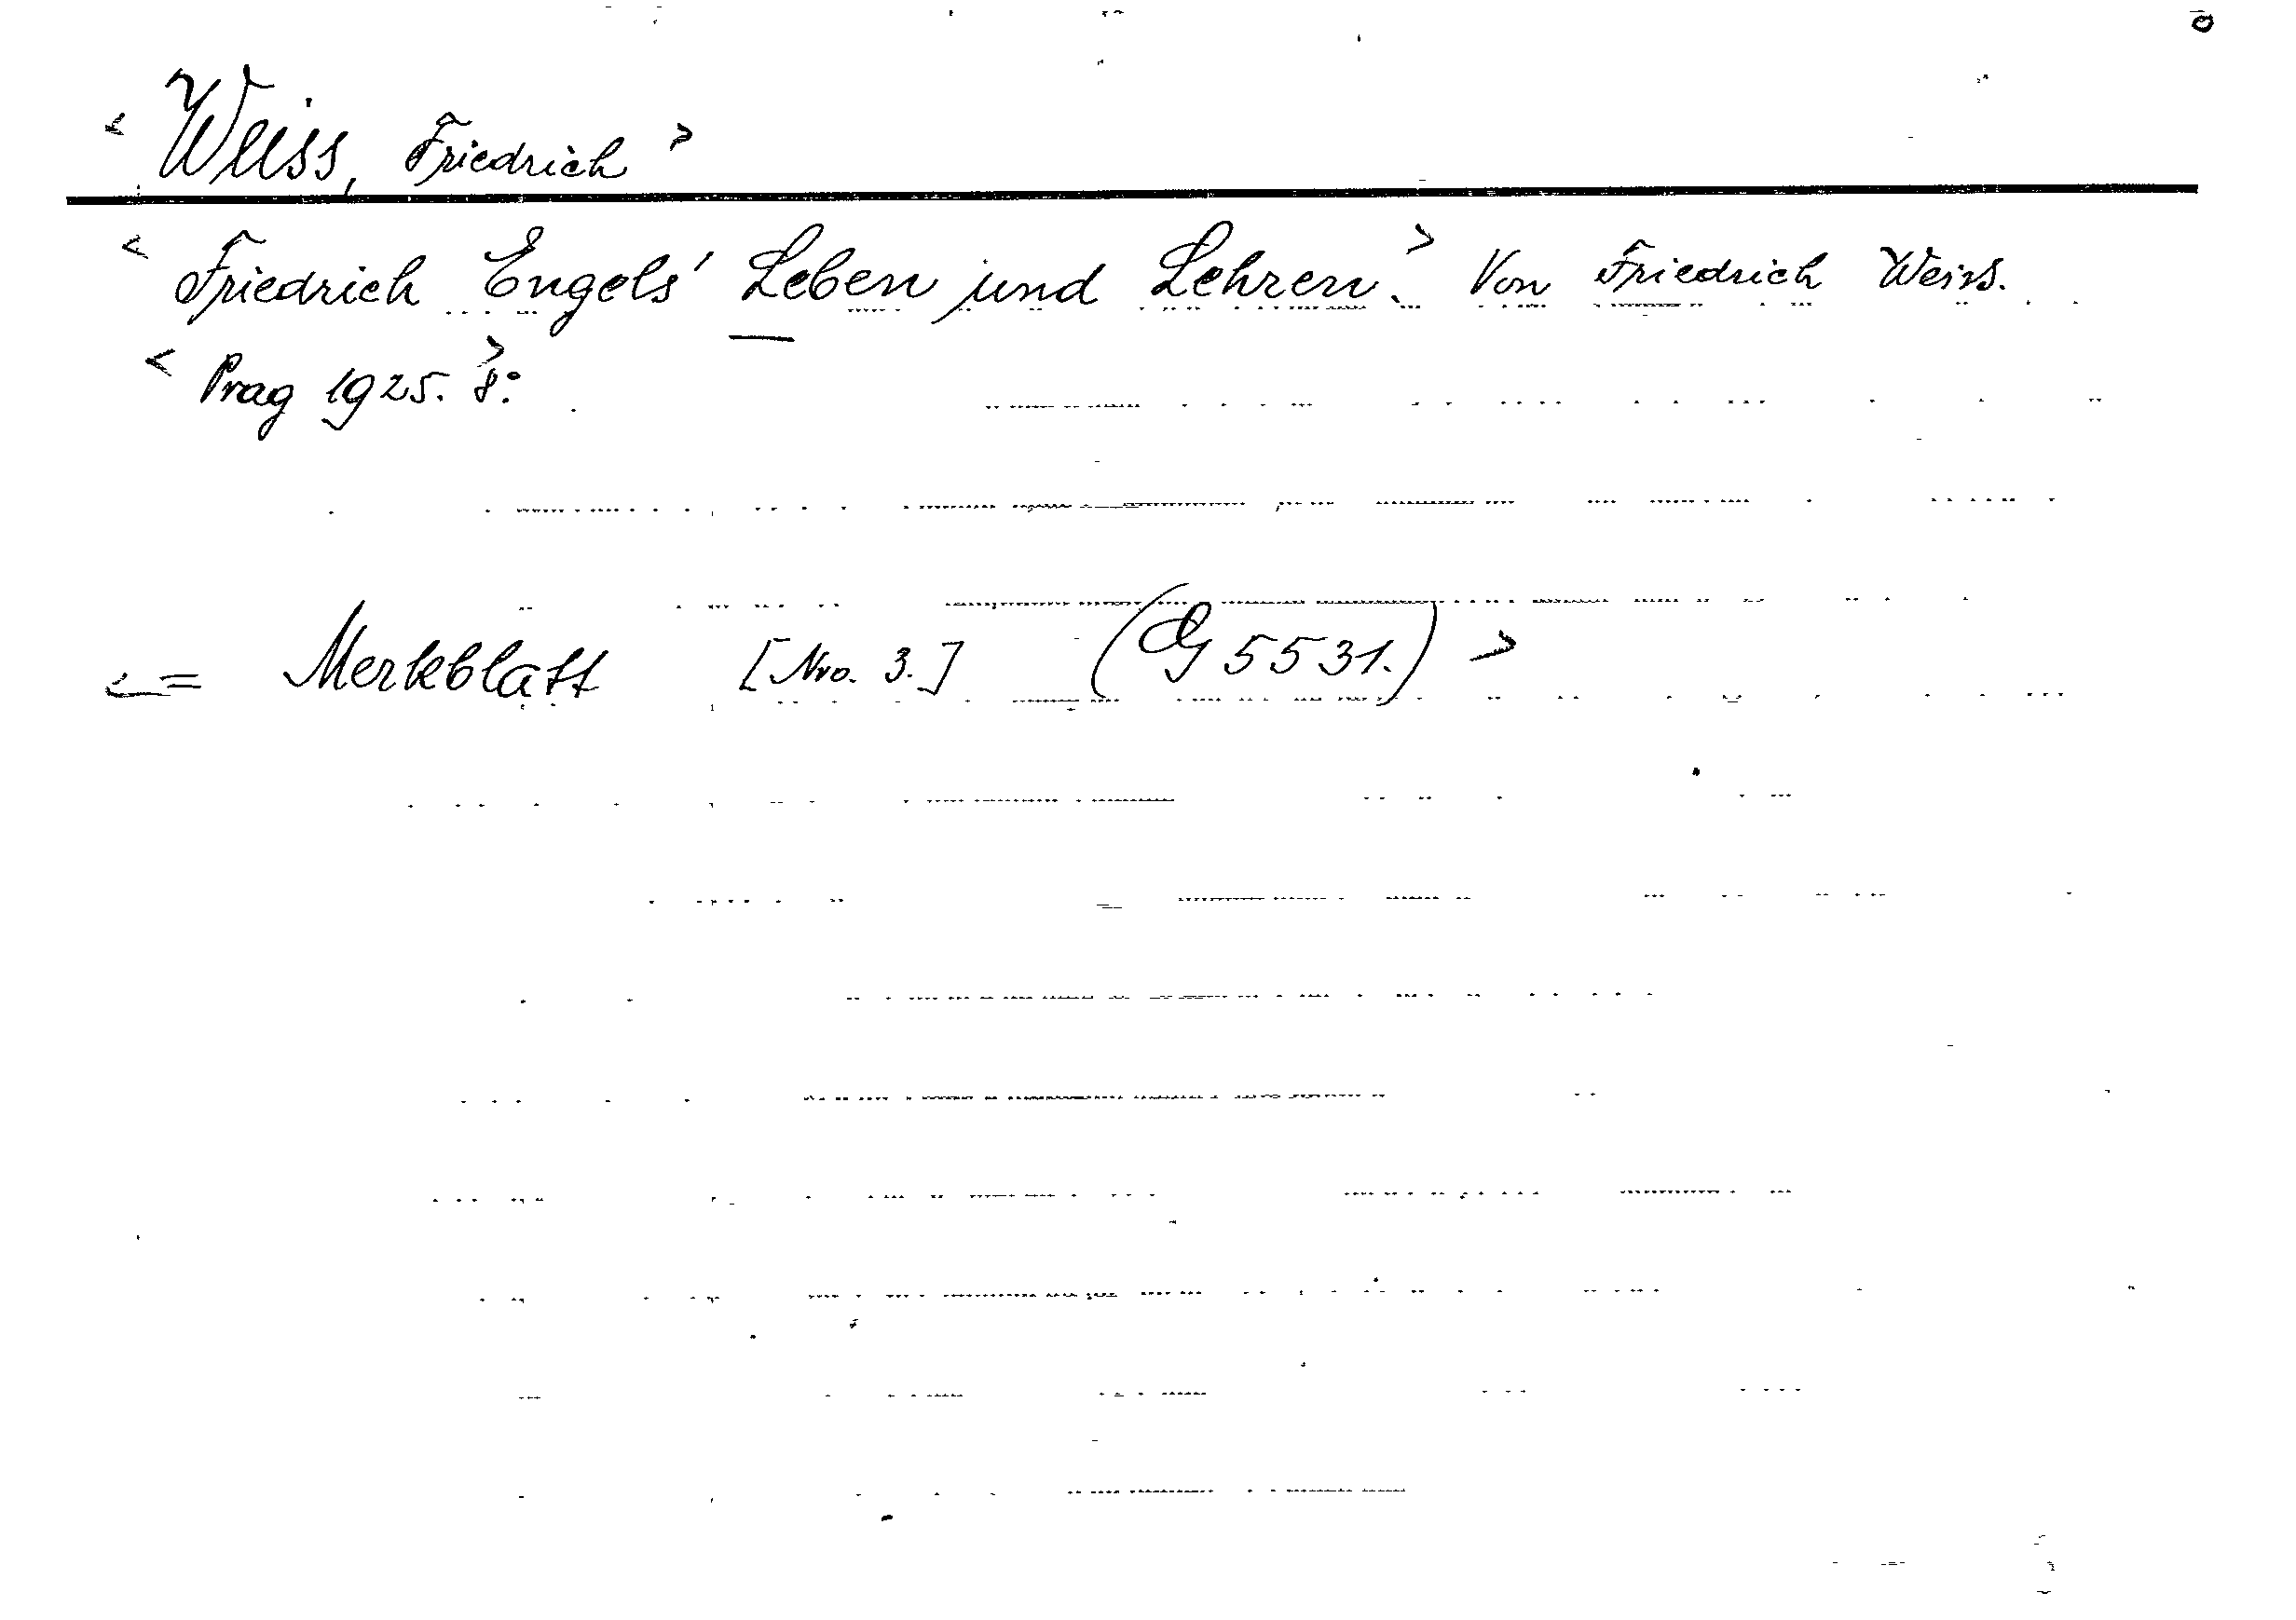 < Weiss, Friedrich >
< Friedrich Engels' Leben und Lehren. > Von Friedrich Weiss.
< Prag 1925. > 8°.
< = Merkblatt [Nro. 3.] (G 5531.) >